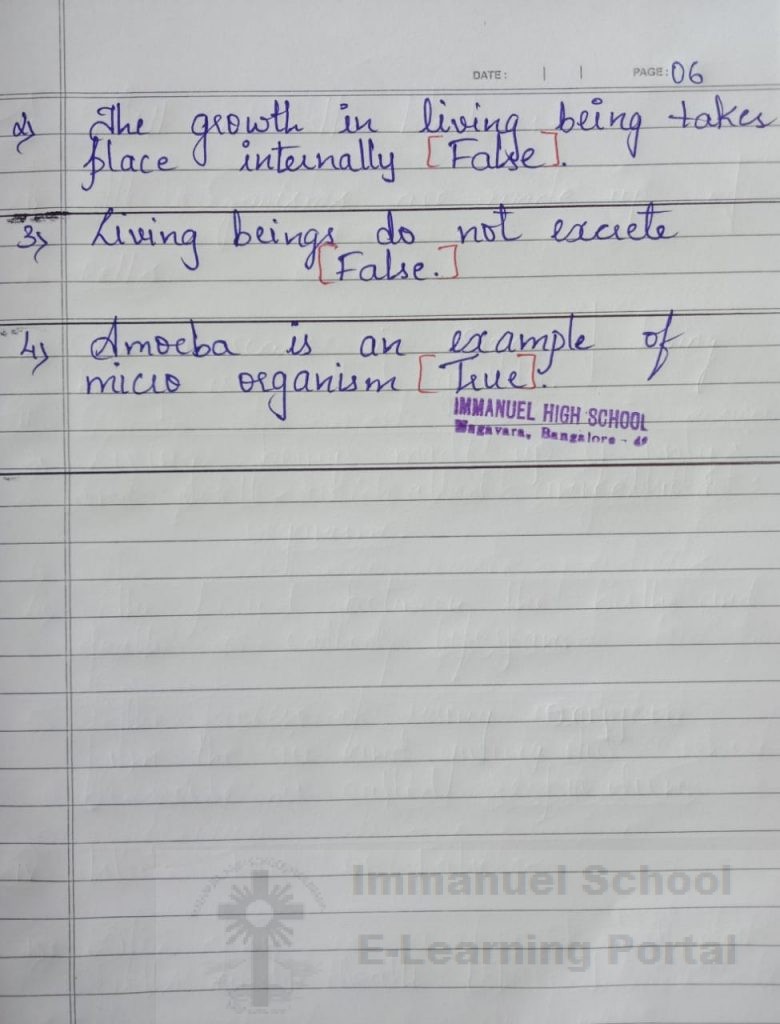 DATE: | | PAGE: 06
2) The growth in living being takes
place internally [False].
3) Living beings do not excrete
[False.]
4) Amoeba is an example of
micro organism [True].
IMMANUEL HIGH SCHOOL
Nagavara, Bangalore - 45
Immanuel School
E-Learning Portal